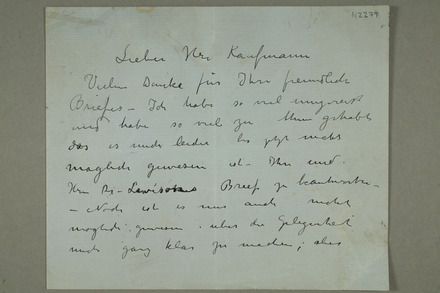 42279
Lieber Herr Kaufmann
Vielen Danke für Ihre freundliche
Briefes – Ich habe so viel umgereist
und habe so viel zu thun gehabt
das es mir leider bis jetzt nicht
möglich gewesen ist – Ihr und
Herr Brief zu beantworten –
– Noch ist es mir auch nicht
möglich gewesen über die Gelegenheit
mich ganz klar zu machen; aber